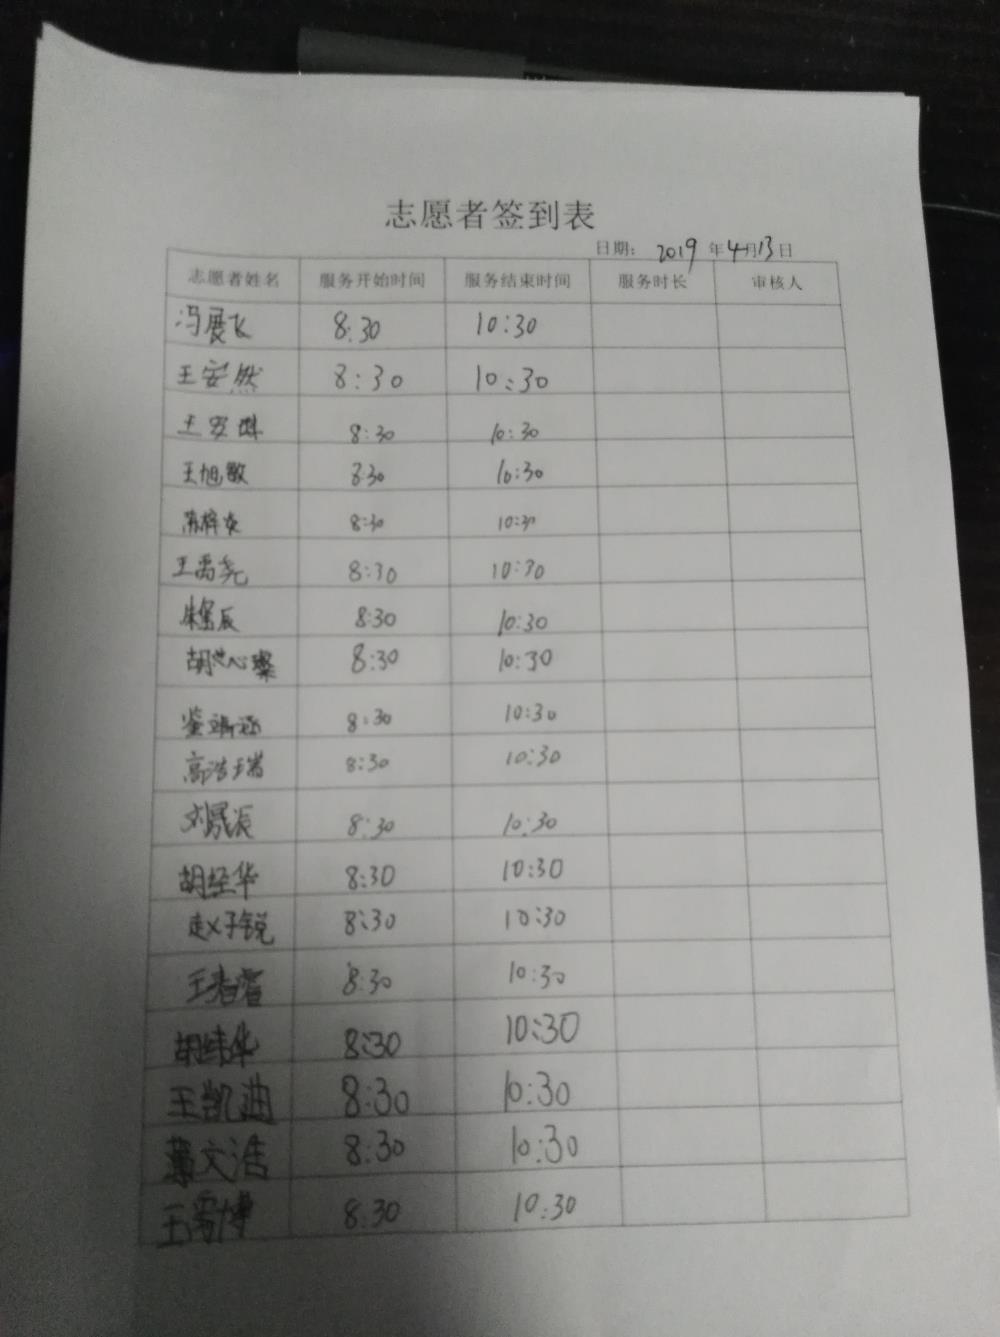 志愿者签到表
日期： 2019 年 4月 13日
志愿者姓名 服务开始时间 服务结束时间 服务时长 审核人
冯展飞 8:30 10:30
王安然 8:30 10:30
王安琪 8:30 10:30
王旭敏 8:30 10:30
8:30 10:30
王禹尧 8:30 10:30
8:30 10:30
8:30 10:30
8:30 10:30
高浩瑞 8:30 10:30
刘晟辰 8:30 10:30
胡经华 8:30 10:30
赵子锐 8:30 10:30
王春睿 8:30 10:30
胡纬华 8:30 10:30
王凯迪 8:30 10:30
葛文浩 8:30 10:30
王禹博 8:30 10:30